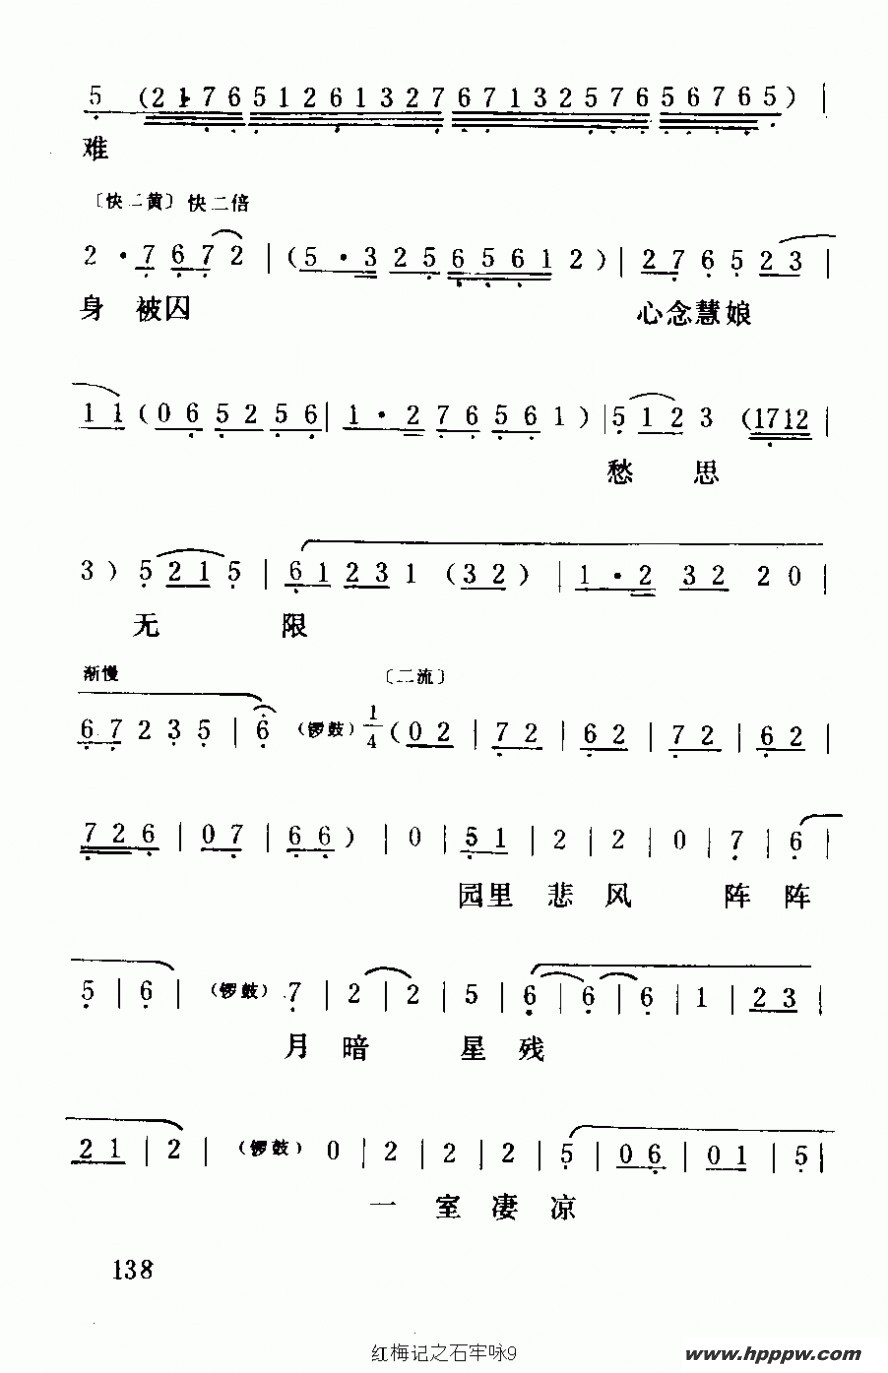 5 (2 1 7 6 5 1 2 6 1 3 2 7 6 7 1 3 2 5 7 6 5 6 7 6 5) |
难
〔快二黄〕快二倍
2 · 7 6 7 2 | (5 · 3 2 5 6 5 6 1 2) | 2 7 6 5 2 3 |
身 被囚 心念慧娘
1 1 (0 6 5 2 5 6 | 1 · 2 7 6 5 6 1) | 5 1 2 3 (1712 |
愁 思
3) 5 2 1 5 | 6 1 2 3 1 (3 2) | 1 · 2 3 2 2 0 |
无 限
渐慢 〔二流〕
6 7 2 3 5 | 6 (锣鼓) 1/4 (0 2 | 7 2 | 6 2 | 7 2 | 6 2 |
7 2 6 | 0 7 | 6 6) | 0 | 5 1 | 2 | 2 | 0 | 7 | 6 |
园里 悲 风 阵 阵
5 | 6 | (锣鼓) 7 | 2 | 2 | 5 | 6 | 6 | 6 | 1 | 2 3 |
月 暗 星 残
2 1 | 2 | (锣鼓) 0 | 2 | 2 | 2 | 5 | 0 6 | 0 1 | 5 |
一 室 凄 凉
138
红梅记之石牢咏9
www.hpppw.com